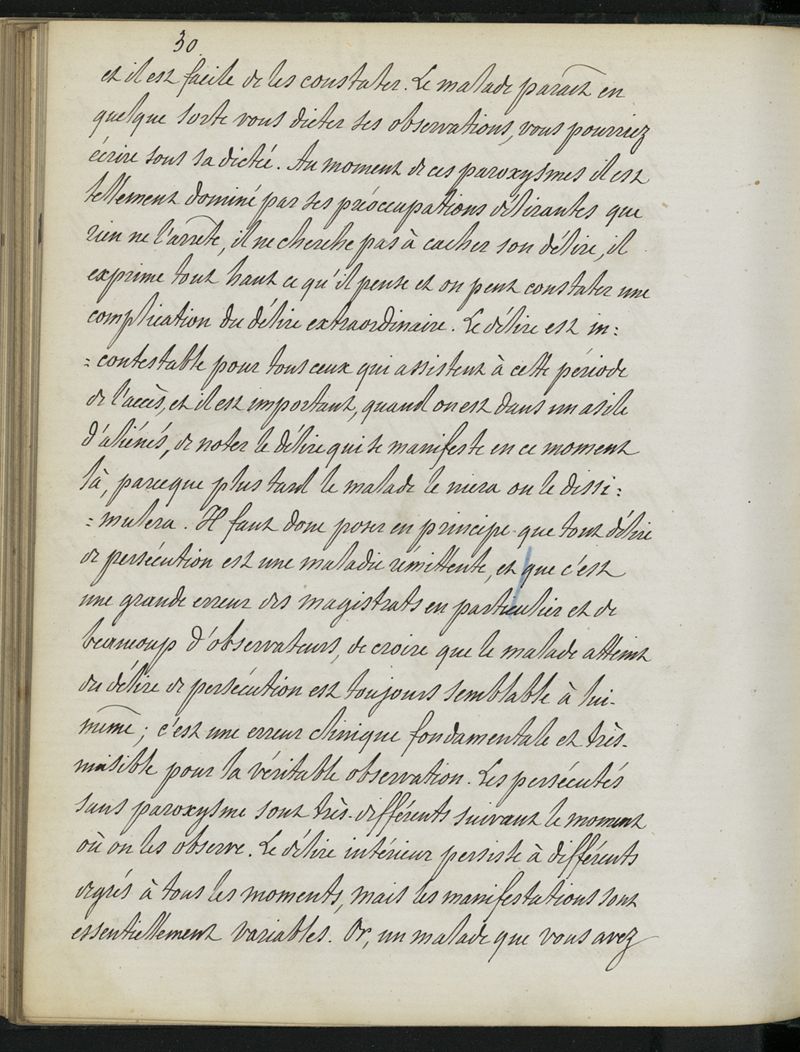 30.
et il est facile de les constater. Le malade paraît en
quelque sorte vous dicter ses observations, vous pourriez
écrire sous sa dictée. Au moment de ces paroxysmes il est
tellement dominé par ses préoccupations délirantes que
rien ne l'arrête, il ne cherche pas à cacher son délire, il
exprime tout haut ce qu'il pense et on peut constater une
complication du délire extraordinaire. Le délire est in:
:contestable pour tous ceux qui assistent à cette période
de l'accès, et il est important, quand on est dans un asile
d'aliénés, de noter le délire qui se manifeste en ce moment
là, parceque plus tard le malade le niera ou le dissi:
:mulera. Il faut donc poser en principe que tout délire
de persécution est une maladie rémittente, et que c'est
une grande erreur des magistrats en particulier et de
beaucoup d'observateurs, de croire que le malade atteint
du délire de persécution est toujours semblable à lui-
même; c'est une erreur clinique fondamentale et très-
nuisible pour la véritable observation. Les persécutés
sans paroxysme sont très-différents suivant le moment
où on les observe. Le délire intérieur persiste à différents
degrés à tous les moments, mais les manifestations sont
essentiellement variables. Or, un malade que vous avez